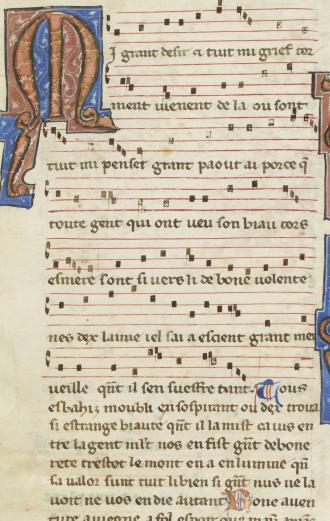 M
I grant desir et tuit mi grief tor
ment vienent de la ou sont
tuit mi penser grant paour ai porce q̃
toute gent qui ont veu son biau cors
esmere sont si vers li de bone volente
nes dex laime iel sai a escient grant mer
ueille qñt il sen sueffre tant. Tous
esbahiz moubli en sospirant ou dex troua
si estrange biaute qñt il la mist ca ius en
tre la gent mlt nos en fist gñt debone
rete trestot le mont en a enlumine qñ
sa valor sunt tuit li bien si gñt nus ne la
voit ne vos en die autant Bone aven